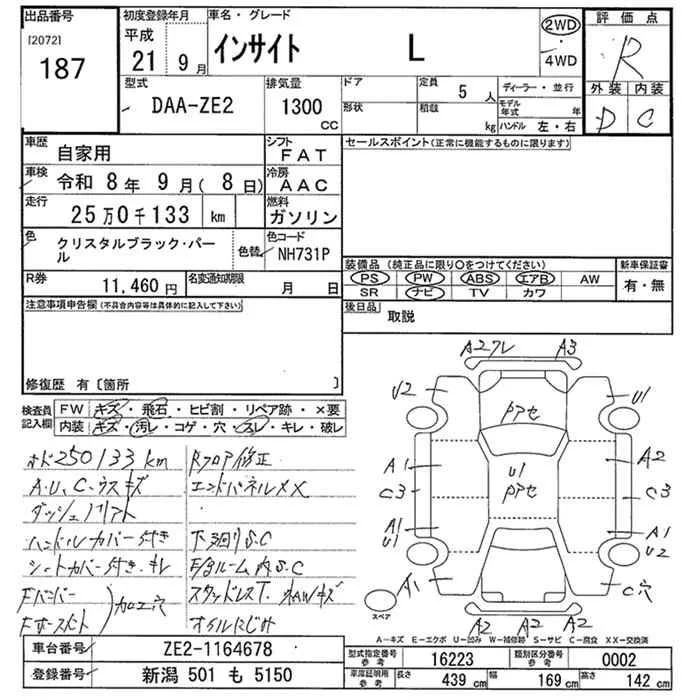 出品番号
[2072]
187
初度登録年月
平成
21 9月
車名・グレード
インサイト L
2WD
・
4WD
評価点
R
外装 内装
D C
型式
DAA-ZE2
排気量
1300 CC
ドア
形状
定員
5 人
積載
kg
ディーラー・並行
モデル年式 年
ハンドル 左・右
車歴
自家用
車検
令和 8年 9月(8日)
走行
25万0千133 km
色
クリスタルブラック・パール
色替
シフト
FAT
冷房
AAC
燃料
ガソリン
色コード
NH731P
R券
11,460円
名変通知期限
月 日
セールスポイント(正常に機能するものに限ります)
装備品(純正品に限り○をつけてください)
PS PW ABS エアB AW
SR ナビ TV カワ
新車保証書
有・無
後日品
取説
注意事項申告欄(不具合内容等は具体的に記入して下さい)
修復歴 有〔箇所 〕
検査員記入欄
FW キズ・飛石・ヒビ割・リペア跡・×要
内装 キズ・汚レ・コゲ・穴・スレ・キレ・破レ
250133km
A.U.C.ウスキズ
ハンドルカバー付き
シートカバー付き.キレ
Fバンパー
加工穴
Rフロア修正
エンドパネルXX
下廻りS.C
F/Bルーム内S.C
スタッドレスT.
オイルにじみ
A2ワレ A3
U2 U1
アアセ
A1 U1 A2
アアセ
C3 C3
A1 A1
U1 U2
A1 C穴
スペア
A2 A2 A2
A-キズ E-エクボ U-凹み W-補修跡 S-サビ C-腐食 XX-交換済
車台番号
ZE2-1164678
登録番号
新潟 501 も 5150
型式指定番号 参考
16223
類別区分番号 参考
0002
車庫証明用 参考
長さ 439 cm
幅 169 cm
高さ 142 cm